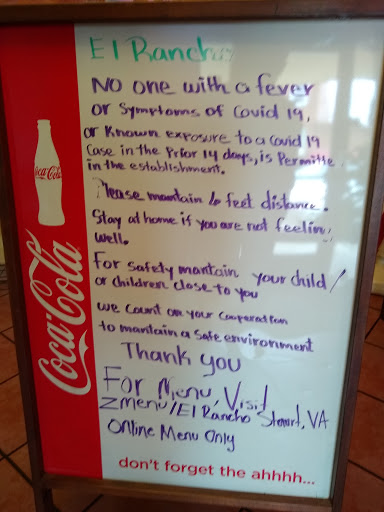 El Rancho
No one with a fever
or Symptoms of Covid 19,
or Known exposure to a Covid 19
Case in the Prior 14 days, is Permitte
in the establishment.
Please maintain 6 feet distance.
Stay at home if you are not feelin
well.
For safety mantain your child/
or children close to you
we count on your cooperation
to mantain a safe environment
Thank you
For Menu, Visit
Zmenu/El Rancho Stuart, VA
Online Menu Only
don't forget the ahhhh...
Coca-Cola
Coca-Cola